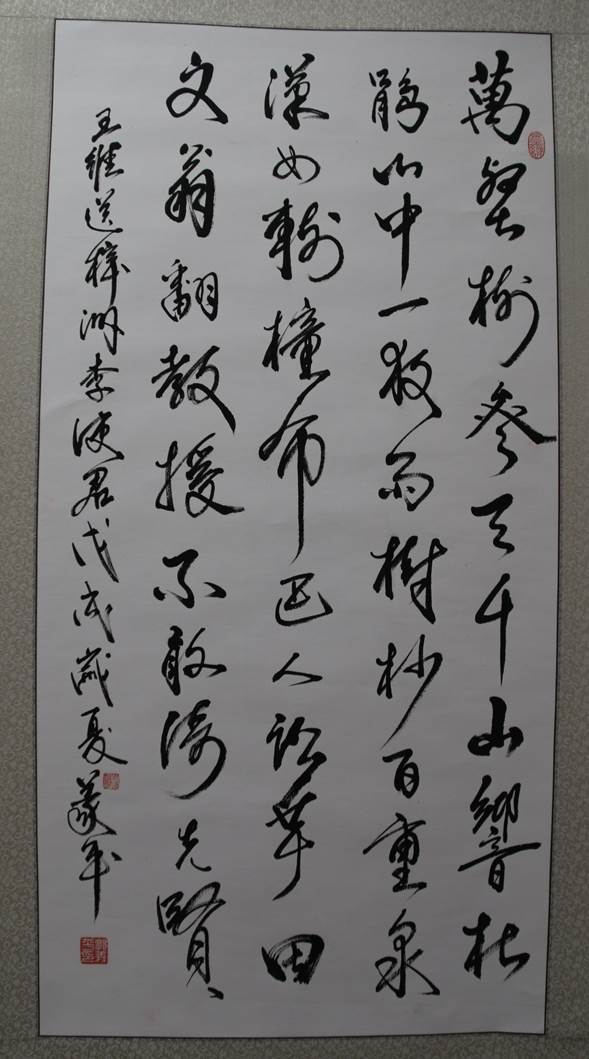 萬壑樹參天千山響杜
鵑山中一夜雨樹杪百重泉
漢女輸橦布巴人訟芋田
文翁翻教授不敢倚先賢
王維送梓州李使君戊戌歲夏義平